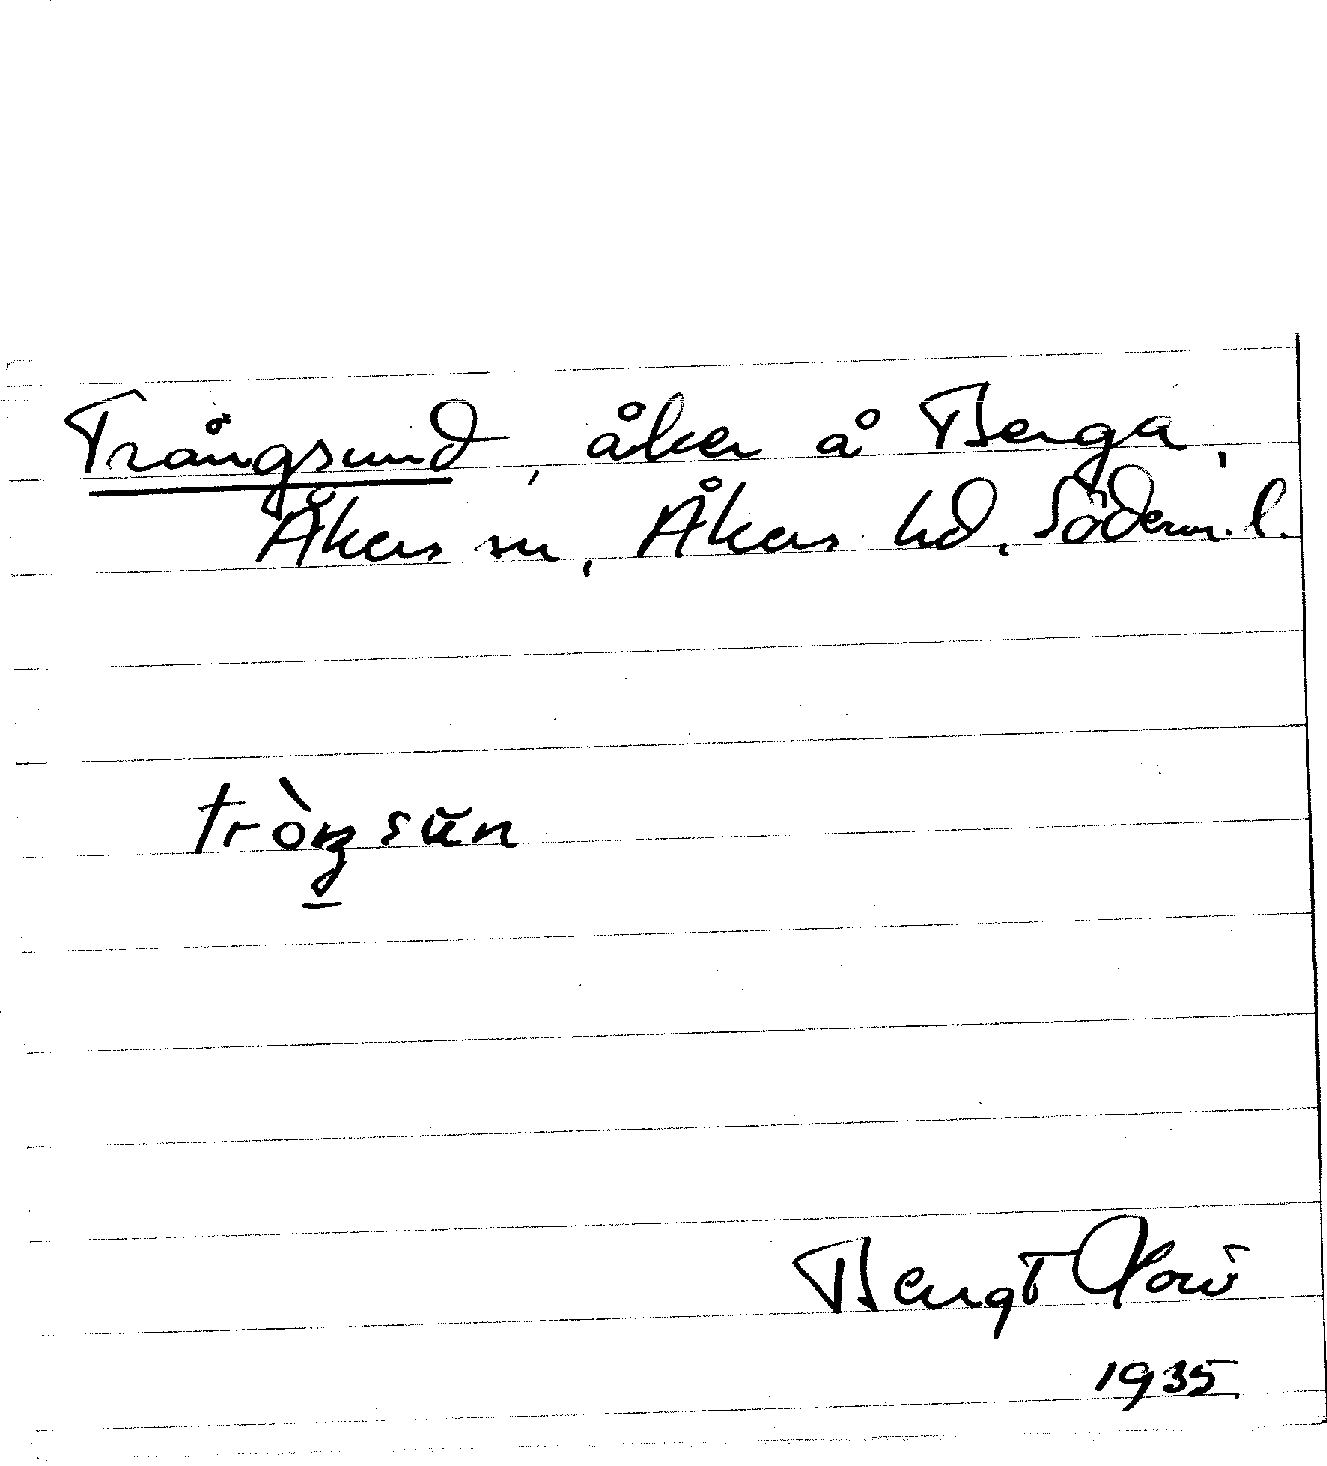 Trångsund, åker å Berga,
Åkers sn, Åkers hd, Söderm. l.
tròŋsŭn
Bengt
1935